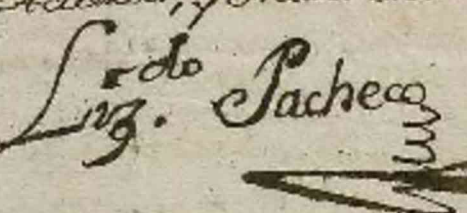 Liz.do Pacheco